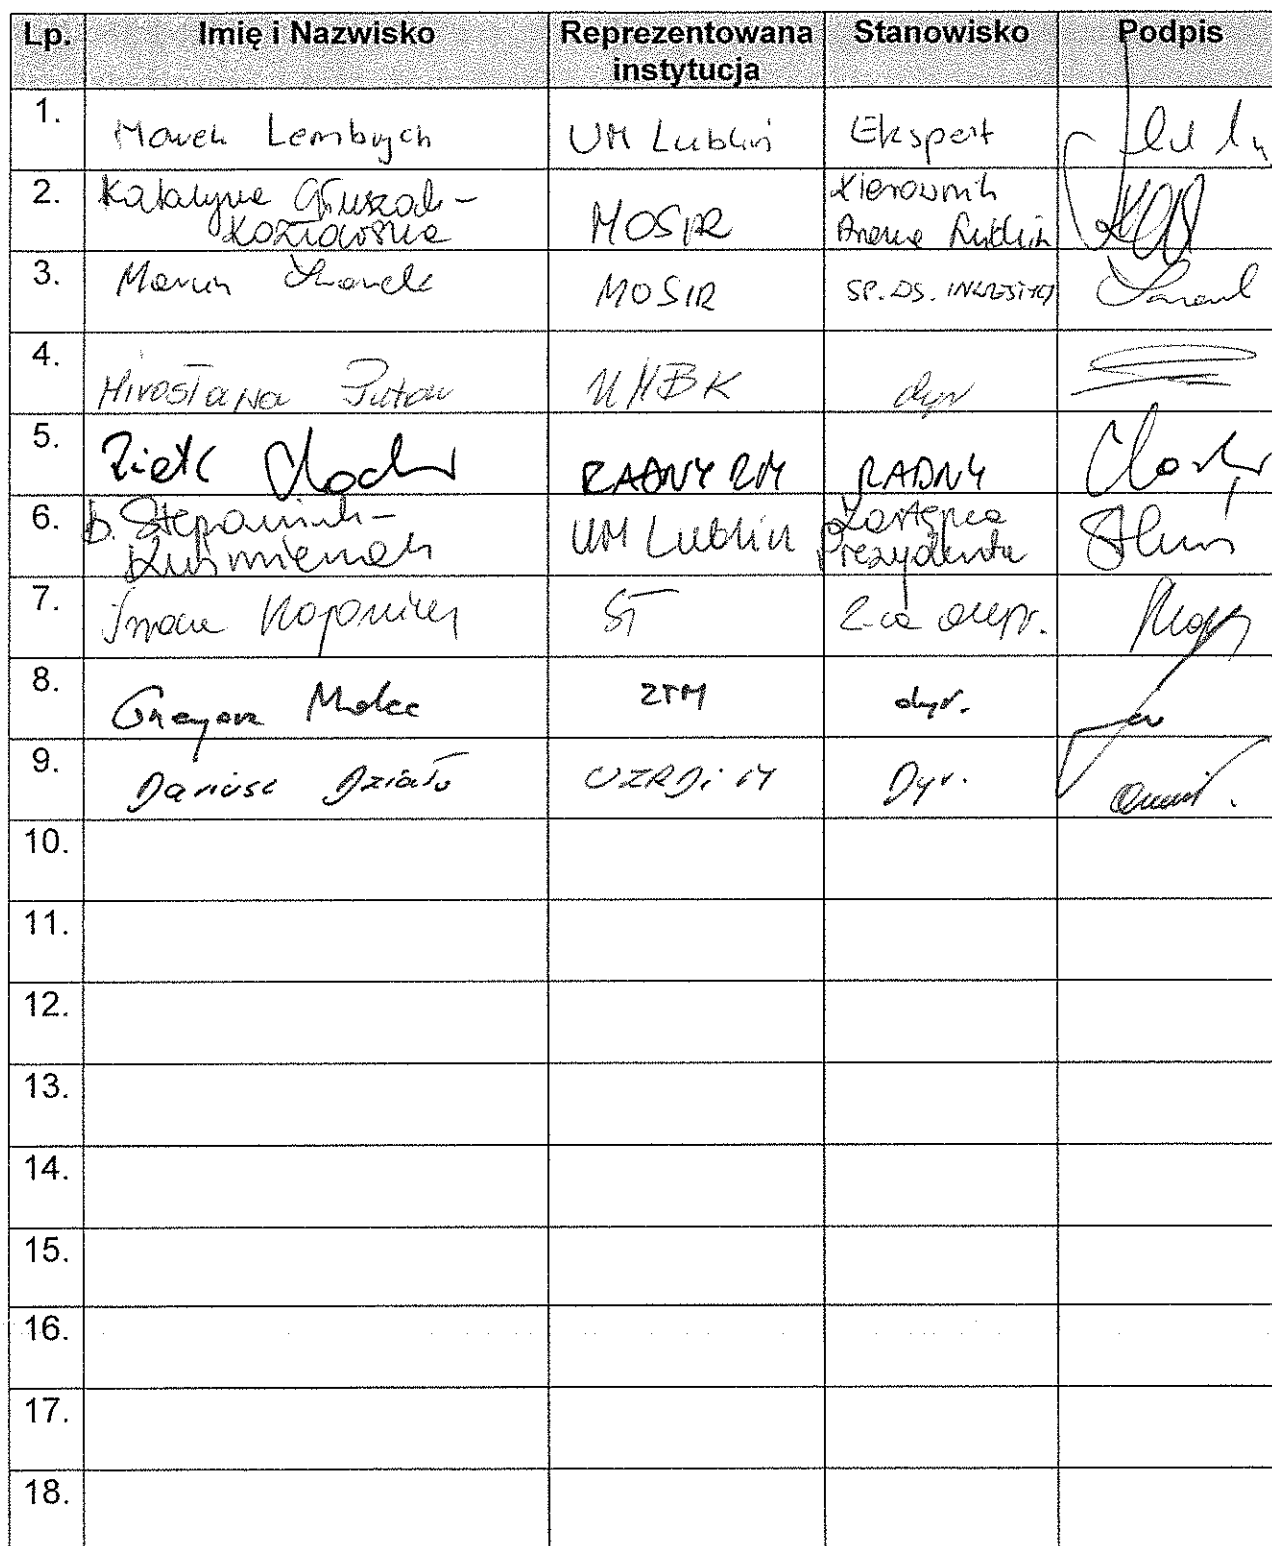 Lp. Imię i Nazwisko Reprezentowana instytucja Stanowisko Podpis
1. Marek Lembrych UM Lublin Ekspert
2. Katarzyna Głuszak-
Kozłowska MOSiR Kierownik
Arena Lublin
3. Marcin MOSIR SP. DS. INWESTYCJI
4. Mirosława UMBK dyr
5. RADNY RM RADNY
6. B. Stepaniuk-
Kuśmierzak UM Lublin Zastępca
Prezydenta
7. ST Z-ca dyr.
8. Grzegorz Malec ZTM dyr.
9. Dariusz Działo Dyr.
10.
11.
12.
13.
14.
15.
16.
17.
18.